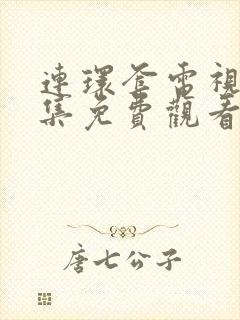 連環套電視
集免費觀看
唐七公子